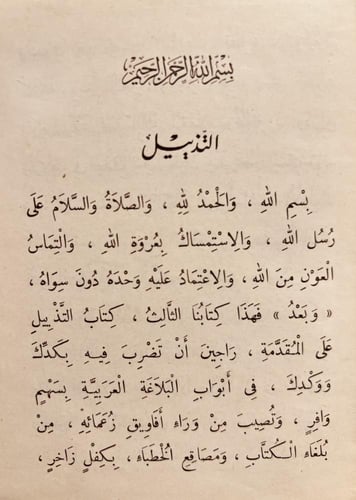 بِسْمِ اللهِ الرَّحْمٰنِ الرَّحِيْمِ
التَّذْيِيل
بِسْمِ اللهِ ، وَالْحَمْدُ لِلهِ ، وَالصَّلَاةُ وَالسَّلَامُ عَلَى
رُسُلِ اللهِ ، وَالِاسْتِمْسَاكُ بِعُرْوَةِ اللهِ ، وَالْتِمَاسُ
الْعَوْنِ مِنَ اللهِ ، وَالِاعْتِمَادُ عَلَيْهِ وَحْدَهُ دُونَ سِوَاهُ ،
« وَبَعْدُ » فَهَذَا كِتَابُنَا الثَّالِثُ ، كِتَابُ التَّذْيِيلِ
عَلَى الْمُقَدَّمَةِ ، رَاجِينَ أَنْ تَضْرِبَ فِيهِ بِكَدِّكَ
وَوَكْدِكَ ، فِى أَبْوَابِ الْبَلَاغَةِ الْعَرَبِيَّةِ بِسَهْمٍ
وَافِرٍ ، وَتُصِيبَ مِنْ وَرَاءِ أَفَاوِيقِ زُعَمَائِهِ ، مِنْ
بُلَغَاءِ الْكُتَّابِ ، وَمَصَاقِعِ الْخُطَبَاءِ ، بِكِفْلٍ زَاخِرٍ ،